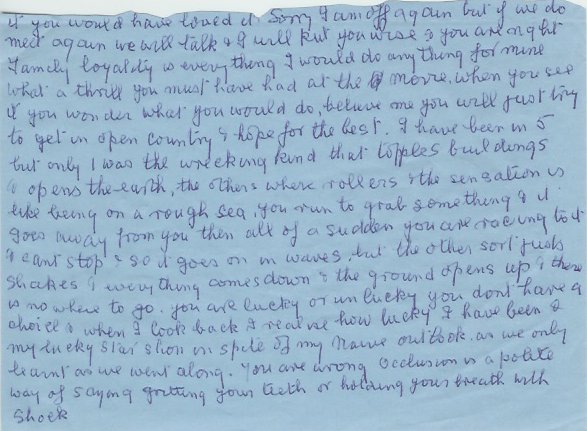 it you would have loved it Sorry I am off again but if we do
meet again we will talk & I will put you wise & you are right
Family loyaldy is everything I would do any thing for mine
what a thrill you must have had at the movie, when you see
it you wonder what you would do, believe me you will just try
to get in open country & hope for the best. I have been in 5
but only 1 was the wrecking kind that topples buildings
& opens the earth, the others where rollers & the sensation is
like being on a rough sea, you run to grab something & it
goes away from you then all of a sudden you are racing to it
& cant stop & so it goes on in waves but the other sort just
shakes & everything comes down & the ground opens up & there
is no where to go. you are lucky or unlucky you dont have a
choice & when I look back I realise how lucky I have been &
my lucky star shon in spite of my naive outlook. as we only
learnt as we went along. You are wrong Occlusion is a polite
way of saying gritting your teeth or holding your breath with
shock